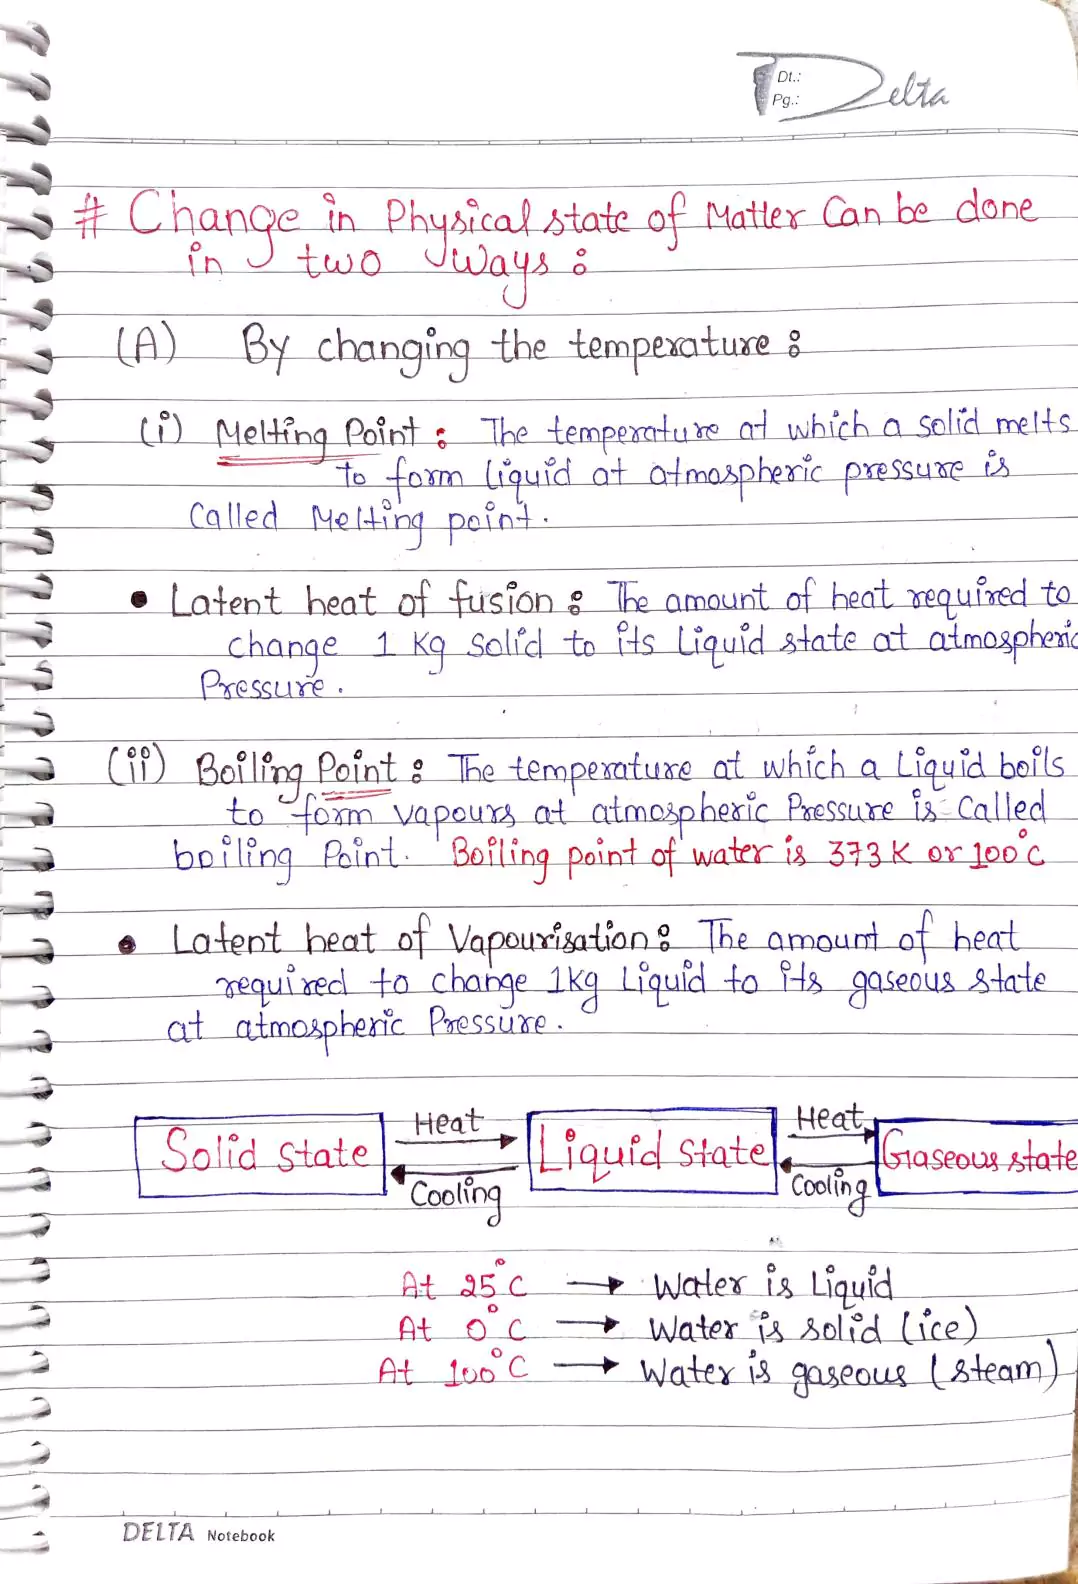 Dt.:
Pg.:
Delta
# Change in Physical state of Matter Can be done
in two Ways :
(A) By changing the temperature :
(i) Melting Point : The temperature at which a solid melts
to form liquid at atmospheric pressure is
Called Melting point.
• Latent heat of fusion : The amount of heat required to
change 1 Kg Solid to its Liquid state at atmospheric
Pressure.
(ii) Boiling Point : The temperature at which a Liquid boils
to form vapours at atmospheric Pressure is Called
boiling Point. Boiling point of water is 373 K or 100°C
• Latent heat of Vapourisation : The amount of heat
required to change 1kg Liquid to its gaseous state
at atmospheric Pressure.
Solid State Heat Cooling Liquid State Heat Cooling Gaseous state
At 25°C → Water is Liquid
At 0°C → Water is solid (ice)
At 100°C → Water is gaseous (steam)
DELTA Notebook